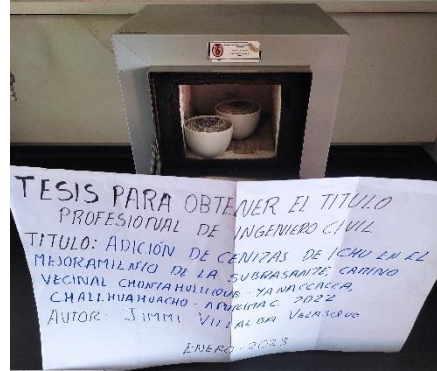 TESIS PARA OBTENER EL TITULO
PROFESIONAL DE INGENIERO CIVIL
TITULO: ADICIÓN DE CENIZAS DE ICHU EN EL
MEJORAMIENTO DE LA SUBRASANTE, CAMINO
VECINAL CHONTAHUILLQUE - YANACCACCA,
CHALLHUAHUACHO - APURIMAC 2022
AUTOR: JIMMI VILLALBA VELASQUE
ENERO - 2023